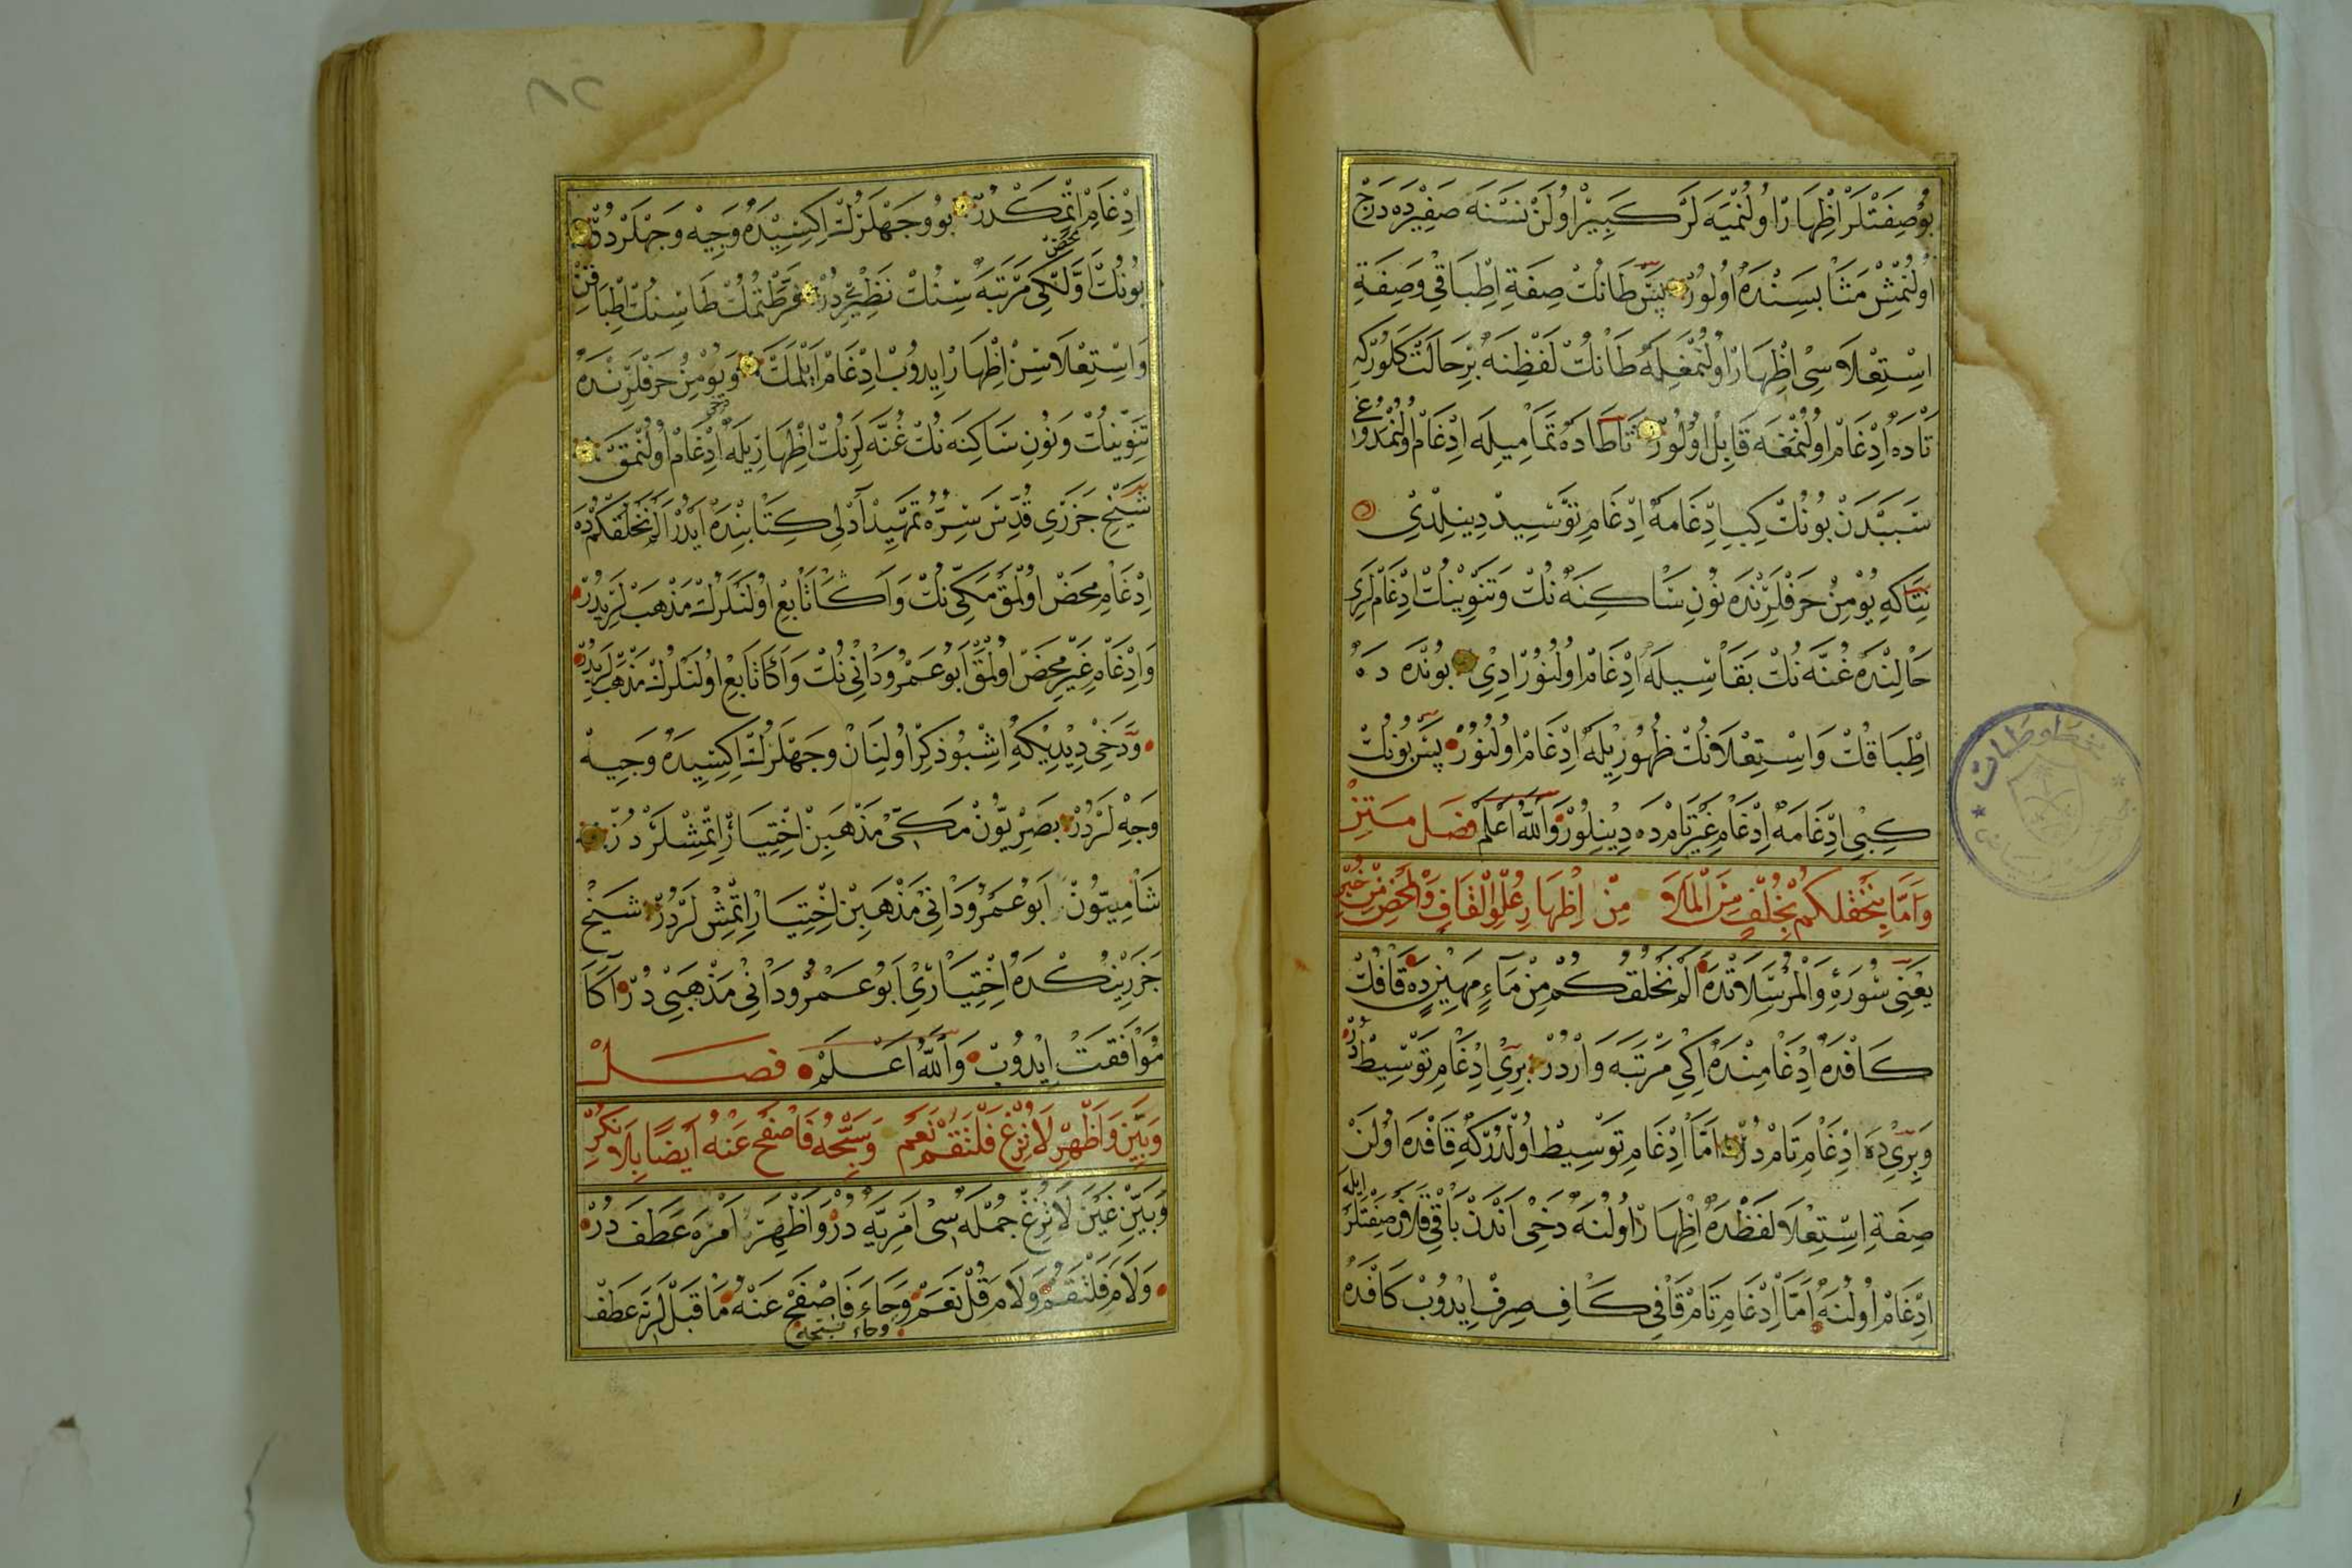 بُو صِفَتْلَرْ اِظْهَارْ اُولُنْمَيَه لَرْ كَبِيرْ اُولَنْ نَسْنَه صَفِيرْدَه دَرْجْ
اُولُنْمِشْ مَثَابَسِنْدَه اُولُورْ پَسْ طَانُكْ صِفَةِ اِطْبَاقِى وَصِفَةِ
اِسْتِعْلَاسِى اِظْهَارْ اُولُنْمَغِلَه طَانُكْ لَفْظِنَه بِرْ حَالَتْ كَلُورْكِه
تَادَه اِدْغَامْ اُولُنْمَغَه قَابِلْ اُولُورْ تَاطَادَه تَمَامِيلَه اِدْغَامْ اُولُنْمَدُوغِى
سَبَبْدَنْ بُونُكْ كِبِى اِدْغَامَه اِدْغَامِ تَوْسِيدْ دِينِلْدِى
نِتَاكِه يُؤْمِنْ حَرْفْلَرِنْدَه نُونِ سَاكِنَه نُكْ وَتَنْوِينُكْ اِدْغَامْلَرِى
حَالِنْدَه غُنَّه نُكْ بَقَاسِيلَه اِدْغَامْ اُولُنُورْدِى بُونْدَه دَه
اِطْبَاقُكْ وَاِسْتِعْلَانُكْ ظُهُورِيلَه اِدْغَامْ اُولُنُورْ پَسْ بُونُكْ
كِبِى اِدْغَامَه اِدْغَامِ غَيْرِ تَامْ دَه دِينِلُورْ وَاللهُ اَعْلَمْ فَصْل مَتِنْ
وَاَمَّا بِنَخْلُقكُمْ بِخُلْفٍ مِنَ الْمَلَا مِنْ اِظْهَارِ عُلْوِ الْقَافِ وَالْمَحْضِ مِنْ خُبْرِ
يَعْنِى سُورَۀِ وَالْمُرْسَلَاتْدَه اَلَمْ نَخْلُقْكُمْ مِنْ مَآءٍ مَهِينٍ دَه قَافُكْ
كَافْدَه اِدْغَامِنْدَه اِكِى مَرْتَبَه وَارْدُرْ بِرِى اِدْغَامِ تَوْسِيطْدُرْ
وَبِرِى دَه اِدْغَامِ تَامْدُرْ اَمَّا اِدْغَامِ تَوْسِيطْ اُولْدُرْكِه قَافْدَه اُولَنْ
صِفَةِ اِسْتِعْلَا لَفْظْدَه اِظْهَارْ اُولُنَه دَخِى اَنْدَنْ بَاقِى قَلَانْ صِفَتْلَرْ اِيلَه
اِدْغَامْ اُولُنَه اَمَّا اِدْغَامِ تَامْ قَافِى كَافِ صِرْفْ اِيدُوبْ كَافْدَه
٨٢
اِدْغَامْ اِتْمَكْدُرْ بُو وَجْهْلَرُكْ اِكِيسِيدَه وَجِيهْ وَجْهْلَرْدُرْ
بُونُكْ اَوَّلْكِى مَرْتَبَه سِنُكْ نَظِيرِيدُرْ فَرَّطْتُمُكْ طَاسِنُكْ اِطْبَاقِنْ
وَاِسْتِعْلَاسِنْ اِظْهَارْ اِيدُوبْ اِدْغَامْ اَيْلَمَكْ وَيُؤْمِنْ حَرْفْلَرِنْدَه
تَنْوِينُكْ وَنُونِ سَاكِنَه نُكْ غُنَّه لَرِنُكْ اِظْهَارِيلَه اِدْغَامْ اُولُنْمَقْ
شَيْخْ جَزَرِى قُدِّسَ سِرُّه تَمْهِيدْ آدْلِى كِتَابِنْدَه اَيْدُرْ اَلَمْ نَخْلُقْكُمْدَه
اِدْغَامِ مَحْضْ اُولْمَقْ مَكِّى نُكْ وَاَكَا تَابِعْ اُولَنْلَرُكْ مَذْهَبْلَرِيدُرْ
وَاِدْغَامِ غَيْرِ مَحْضْ اُولْمَقْ اَبُو عَمْرُو دَانِى نُكْ وَاَكَا تَابِعْ اُولَنْلَرُكْ مَذْهَبْلَرِيدُرْ
وَدَخِى دِيدِيكِه اِشْبُو ذِكْرْ اُولِنَانْ وَجْهْلَرُكْ اِكِيسِيدَه وَجِيهْ
وَجْهْلَرْدُرْ بَصْرِيُّونْ مَكِّى مَذْهَبِنْ اِخْتِيَارْ اِتْمِشْلَرْدُرْ
شَامِيُّونْ اَبُو عَمْرُو دَانِى مَذْهَبِنْ اِخْتِيَارْ اِتْمِشْلَرْدُرْ شَيْخْ
جَزَرِينُكْدَه اِخْتِيَارِى اَبُو عَمْرُو دَانِى مَذْهَبِيدُرْ اَكَا
مُوَافَقَتْ اِيدُوبْ وَاللهُ اَعْلَمْ فَصْلْ
وَبَيِّنْ وَاَظْهِرْ لَا تُزِغْ فَلْتَقُمْ نَعَمْ وَسَبِّحْهُ فَاصْفَحْ عَنْهُ اَيْضًا بِلَا نُكْرِ
وَبَيِّنْ غَيْنَ لَا تُزِغْ جُمْلَه سِى اَمْرِيَّه دُرْ وَاَظْهِرْ اَمْرَه عَطَفْدُرْ
وَلَامَ فَلْتَقُمْ وَلَامَ قُلْ نَعَمْ وَحَاءَ فَاصْفَحْ عَنْهُ مَا قَبْلَلَرِنَه عَطَفْ
وحاء سبحه